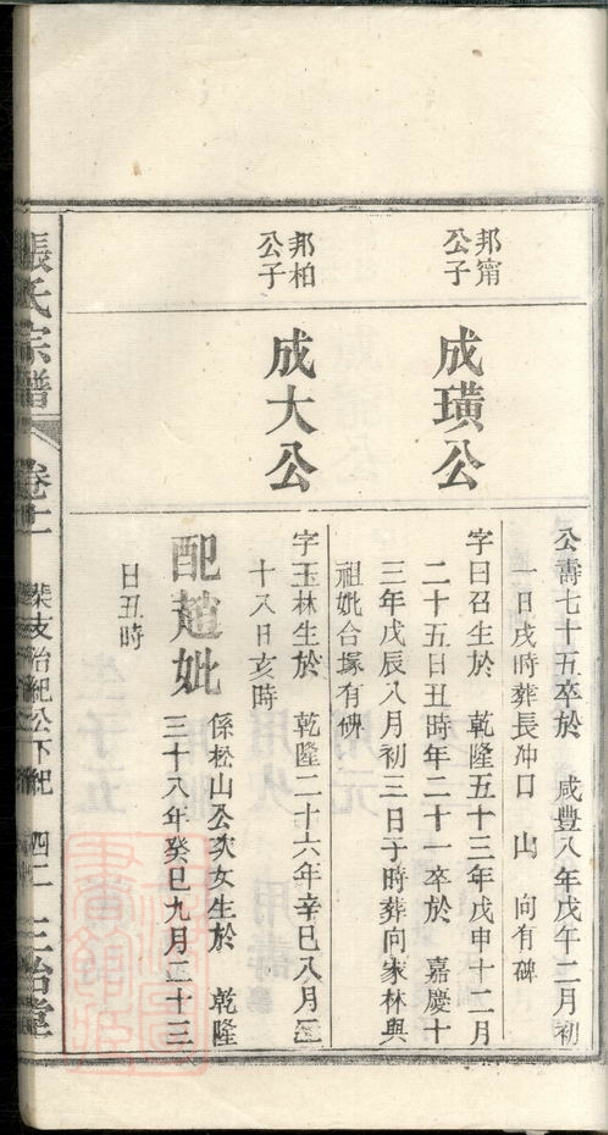 公壽七十五卒於 咸豐八年戊午二月初
一日戌時葬長冲口 山 向有碑
邦甯公子
成璜公
字曰召生於 乾隆五十三年戊申十二月
二十五日丑時年二十一卒於 嘉慶十
三年戊辰八月初三日子時葬向家林與
祖妣合塚有碑
邦柏公子
成大公
字玉林生於 乾隆二十六年辛巳八月
十八日亥時
配趙妣
係松山公次女生於 乾隆
三十八年癸巳九月二十三
日丑時
張氏宗譜
卷十
支治紀公下紀
四二
三治堂